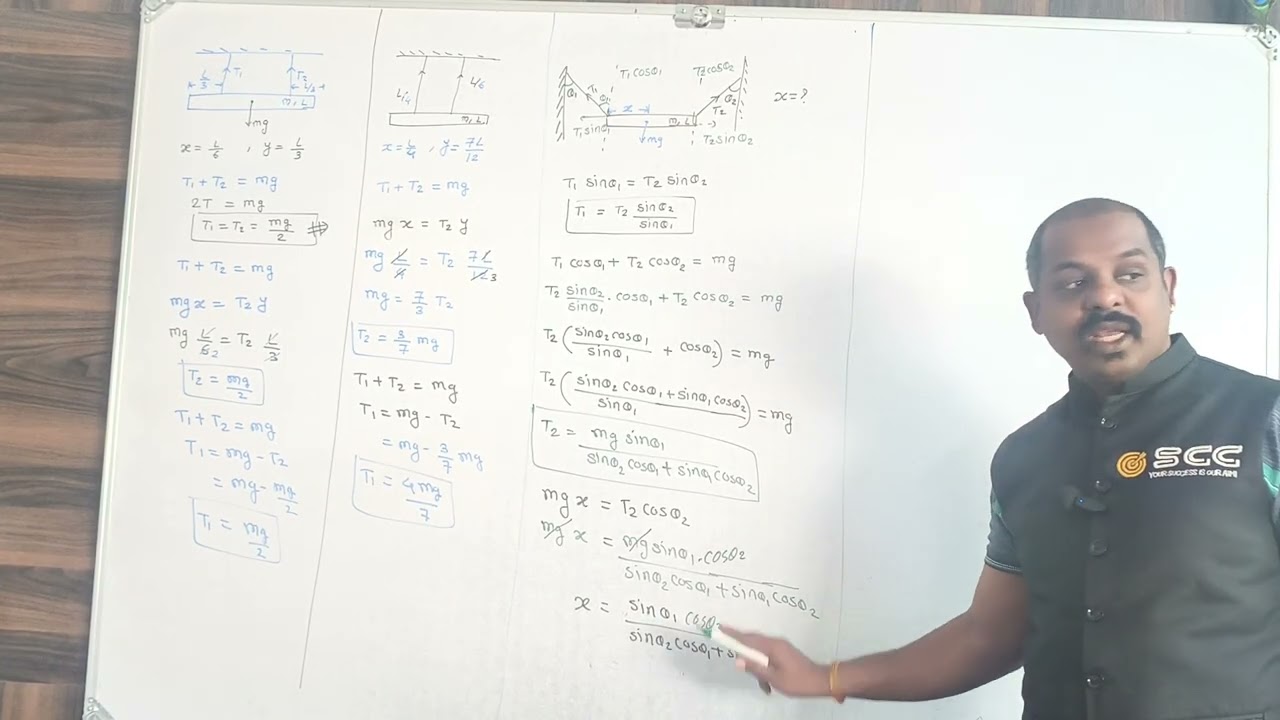 L/3 T₁ T₂ L/3
m, L
mg
x = L/6 , y = L/3
T₁ + T₂ = mg
2T = mg
T₁ = T₂ = mg/2 ⇒
T₁ + T₂ = mg
mg x = T₂ y
mg L/6 2 = T₂ L/3
T₂ = mg/2
T₁ + T₂ = mg
T₁ = mg - T₂
= mg - mg/2
T₁ = mg/2
L/4 L/6
m, L
x = L/4 , y = 7L/12
T₁ + T₂ = mg
mg x = T₂ y
mg L/4 = T₂ 7L/12 3
mg = 7/3 T₂
T₂ = 3/7 mg
T₁ + T₂ = mg
T₁ = mg - T₂
= mg - 3/7 mg
T₁ = 4mg/7
T₁cosθ₁ T₂cosθ₂
θ₁ T₁ θ₁ θ₂ x = ?
x T₂
m, L
T₁sinθ₁ mg T₂sinθ₂
T₁ sinθ₁ = T₂ sinθ₂
T₁ = T₂ sinθ₂/sinθ₁
T₁ cosθ₁ + T₂ cosθ₂ = mg
T₂ sinθ₂/sinθ₁ . cosθ₁ + T₂ cosθ₂ = mg
T₂ (sinθ₂cosθ₁/sinθ₁ + cosθ₂) = mg
T₂ (sinθ₂ cosθ₁ + sinθ₁ cosθ₂/sinθ₁) = mg
T₂ = mg sinθ₁/sinθ₂cosθ₁ + sinθ₁cosθ₂
mg x = T₂ cosθ₂
mg x = mg sinθ₁ . cosθ₂/sinθ₂ cosθ₁ + sinθ₁ cosθ₂
x = sinθ₁ cosθ₂/sinθ₂ cosθ₁ +
SCC
YOUR SUCCESS IS OUR AIM